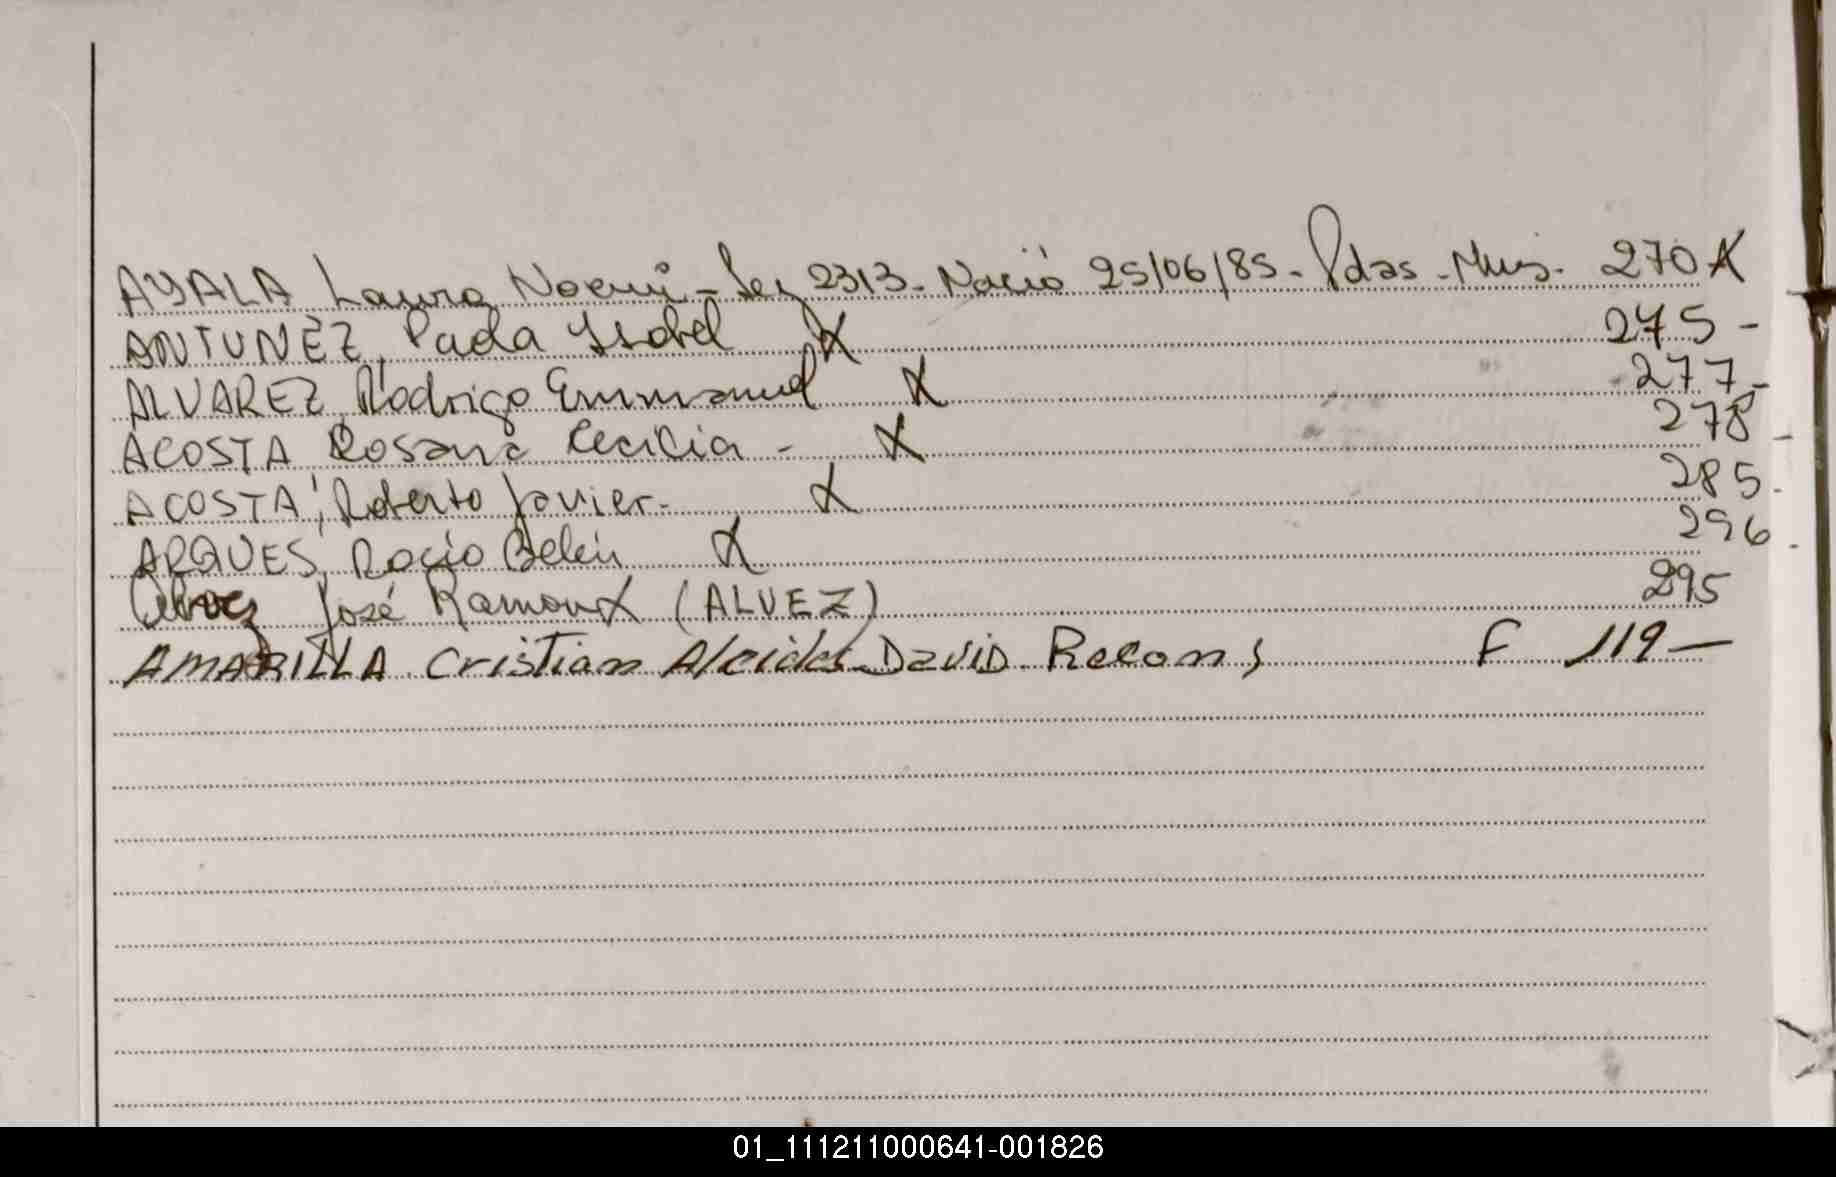 AYALA Laura Noemi - Ley 2313. Nació 25/06/85. Pdas. Mis. 270 X
ANTUNEZ, Paola Isabel X 275 -
ALVAREZ, Rodrigo Emmanuel X 277 -
ACOSTA, Rosana Cecilia - X 278 -
ACOSTA, Roberto Javier. X 285.
ARQUES, Rocio Belén X 296.
Alvez José Ramon X (ALVEZ) 295
AMARILLA Cristian Alcides David Recon. F 119 -
01_111211000641-001826